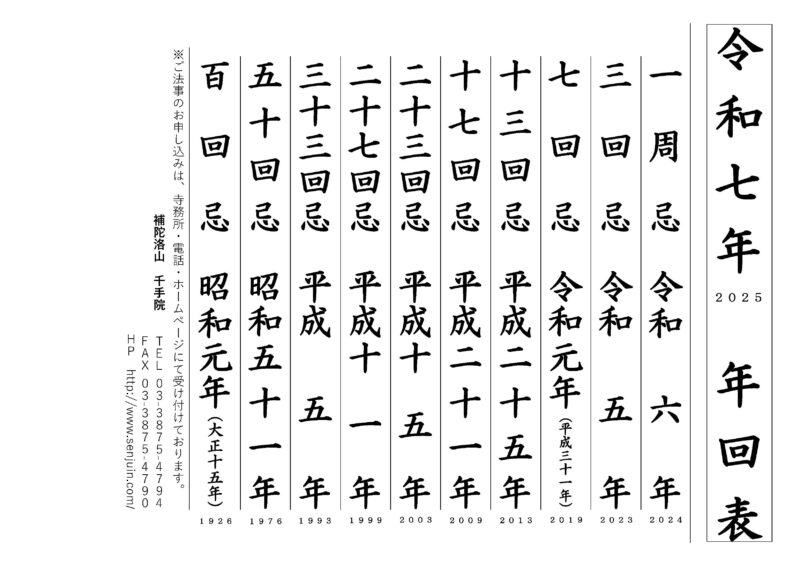 令和七年
2025
年回表
一周忌 令和六年
2024
三回忌 令和五年
2023
七回忌 令和元年(平成三十一年)
2019
十三回忌 平成二十五年
2013
十七回忌 平成二十一年
2009
二十三回忌 平成十五年
2003
二十七回忌 平成十一年
1999
三十三回忌 平成五年
1993
五十回忌 昭和五十一年
1976
百回忌 昭和元年(大正十五年)
1926
※ご法事のお申し込みは、寺務所・電話・ホームページにて受け付けております。
補陀洛山 千手院
TEL 03-3875-4794
FAX 03-3875-4790
HP http://www.senjuin.com/